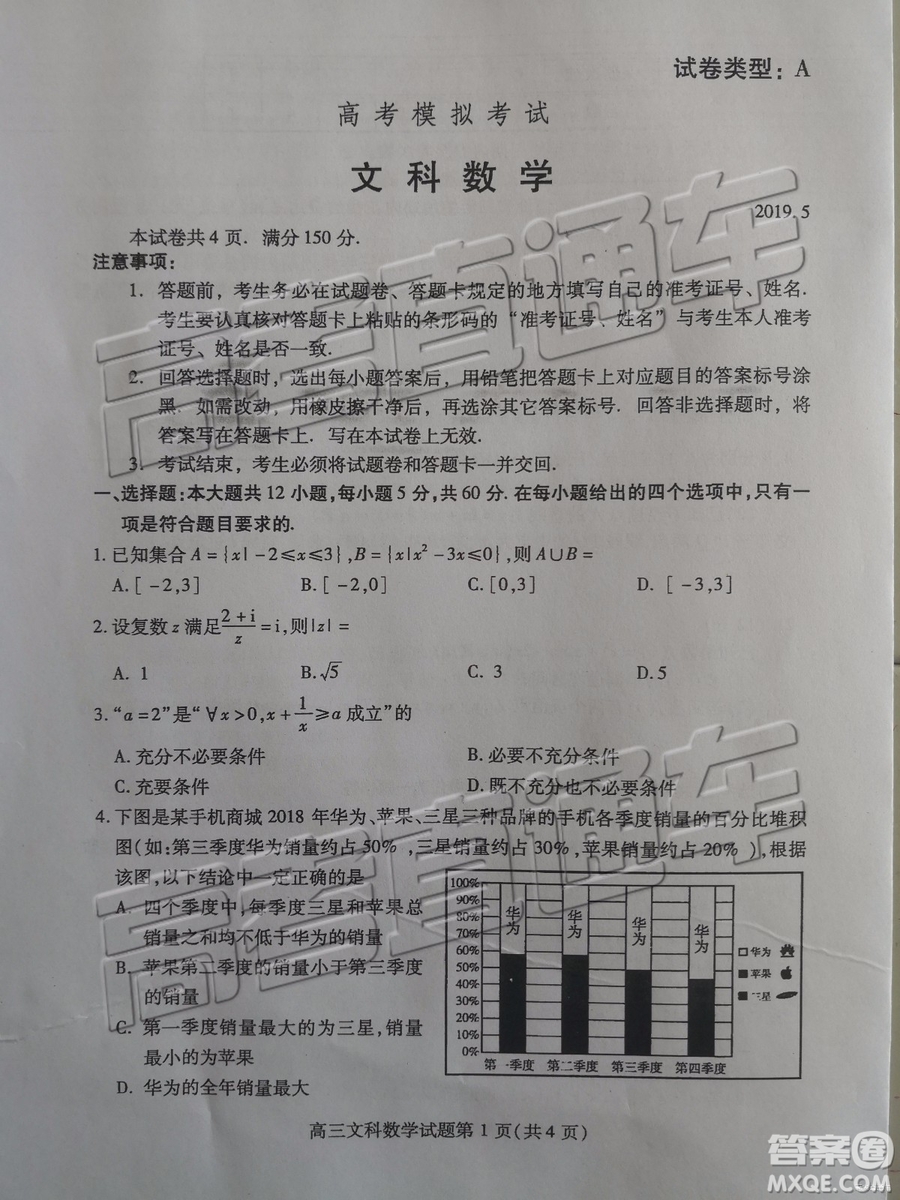 试卷类型：A
高考模拟考试
文科数学
2019.5
本试卷共4页．满分150分．
注意事项：
1．答题前，考生务必在试题卷、答题卡规定的地方填写自己的准考证号、姓名．
考生要认真核对答题卡上粘贴的条形码的“准考证号、姓名”与考生本人准考
证号、姓名是否一致．
2．回答选择题时，选出每小题答案后，用铅笔把答题卡上对应题目的答案标号涂
黑．如需改动，用橡皮擦干净后，再选涂其它答案标号．回答非选择题时，将
答案写在答题卡上．写在本试卷上无效．
3．考试结束，考生必须将试题卷和答题卡一并交回．
一、选择题：本大题共12小题，每小题5分，共60分．在每小题给出的四个选项中，只有一
项是符合题目要求的．
1．已知集合A={x|-2≤x≤3}，B={x|x²-3x≤0}，则A∪B=
A．[-2,3] B．[-2,0] C．[0,3] D．[-3,3]
2．设复数z满足(2+i)/z=i，则|z|=
A．1 B．√5 C．3 D．5
3．“a=2”是“∀x>0，x+1/x≥a成立”的
A．充分不必要条件 B．必要不充分条件
C．充要条件 D．既不充分也不必要条件
4．下图是某手机商城2018年华为、苹果、三星三种品牌的手机各季度销量的百分比堆积
图(如：第三季度华为销量约占50%，三星销量约占30%，苹果销量约占20%)，根据
该图，以下结论中一定正确的是
A．四个季度中，每季度三星和苹果总
销量之和均不低于华为的销量
B．苹果第二季度的销量小于第三季度
的销量
C．第一季度销量最大的为三星，销量
最小的为苹果
D．华为的全年销量最大
100%
90%
80%
70%
60%
50%
40%
30%
20%
10%
0%
华为 华为 华为 华为
第一季度 第二季度 第三季度 第四季度
华为
苹果
三星
高三文科数学试题第1页(共4页)
高考直通车
高考直通车
答案圈
MXQE.COM